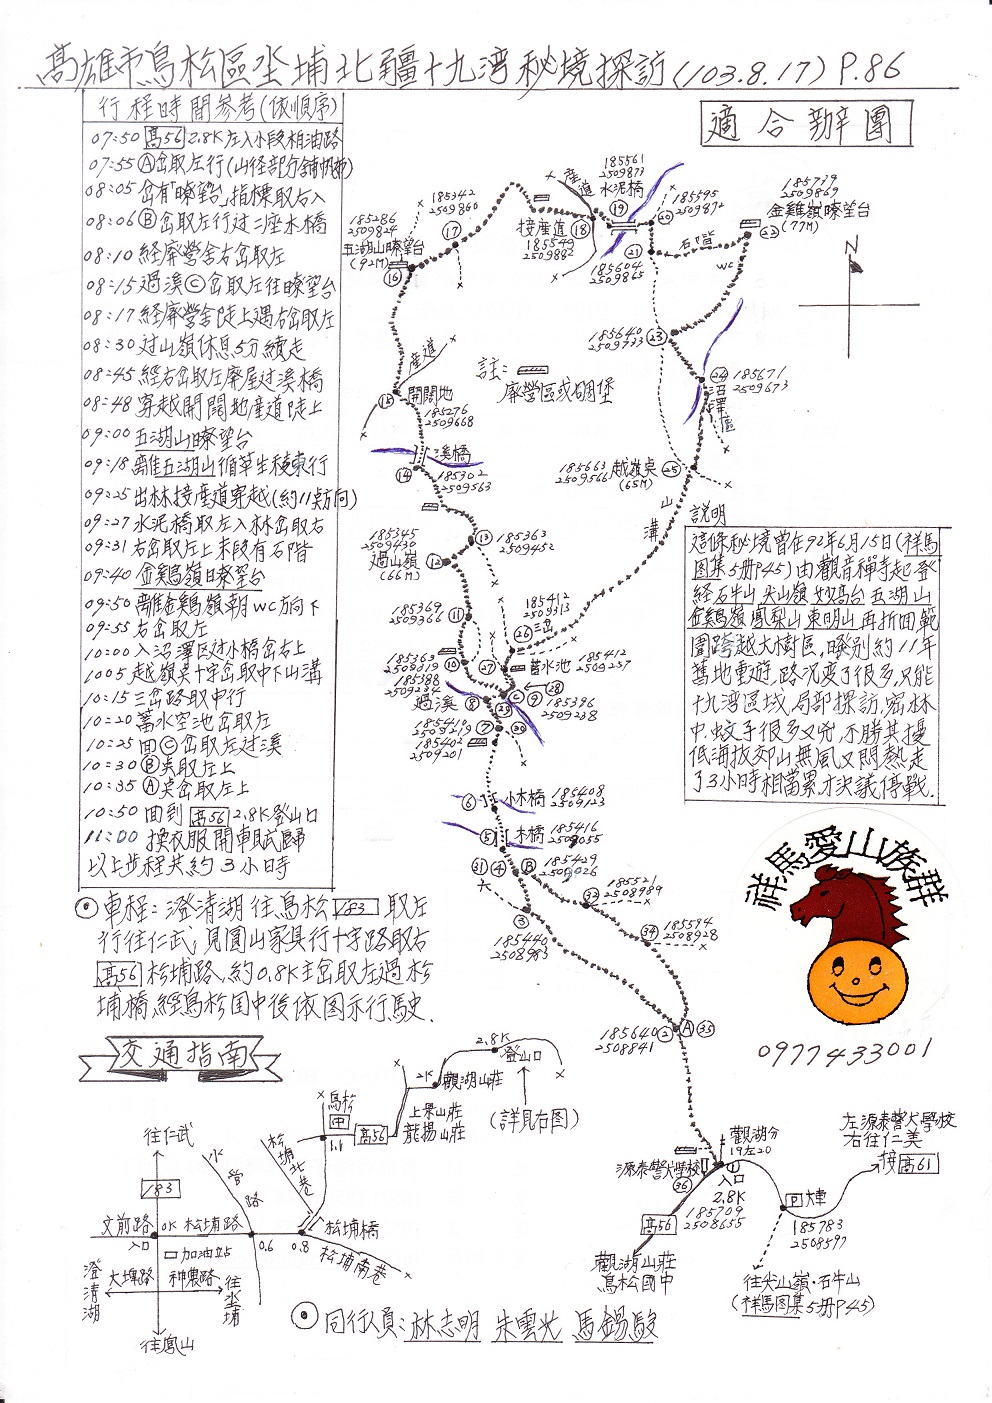 高雄市鳥松區坔埔北疆十九湾秘境探訪(103.8.17) P.86
適合辦團
行程時間參考(依順序)
07:50 高56 2.8K左入小段柏油路
07:55 Ⓐ岔取左行(山径部分舖帆布)
08:05 岔有「瞭望台」指標取右入
08:06 Ⓑ岔取左行过二座木橋
08:10 経廃營舍右岔取左
08:15 過溪Ⓒ岔取左往瞭望台
08:17 経廃營舍陡上遇右岔取左
08:30 过山嶺休息5分續走
08:45 經右岔取左廃屋过溪橋
08:48 穿越開闊地産道陡上
09:00 五湖山瞭望台
09:18 離五湖山循草生稜東行
09:25 出林接産道穿越(約11点方向)
09:27 水泥橋取左入林岔取右
09:31 右岔取左上末段有石階
09:40 金鷄嶺瞭望台
09:50 離金鷄嶺朝WC方向下
09:55 右岔取左
10:00 入沼澤区过小橋岔右上
1005 越嶺吴十字岔取中下山溝
10:15 三岔路取中行
10:20 蓄水空池岔取左
10:25 回Ⓒ岔取左过溪
10:30 Ⓑ吴取左上
10:35 Ⓐ吴岔取左上
10:50 回到 高56 2.8K登山口
11:00 換衣服開車賦歸
以上步程共約3小時
⊙車程:澄清湖往鳥松 183 取左
行往仁武,見圓山家具行十字路取右
高56 松埔路,約0.8K主岔取左過松
埔橋經鳥松国中後依图示行駛.
交通指南
往仁武
183
文前路
0K 松埔路
入口
加油站
大埤路
神農路
澄清湖
往坔埔
往鳳山
水管路
0.6
0.8
松埔北巷
松埔橋
松埔南巷
鳥松
中
1.1
高56
上巢山莊
龍揚山莊
2K
觀湖山莊
2.8K
登山口
(詳見右图)
⊙同行人員:林志明 朱雲光 馬錫駿
185286
2509824
五湖山瞭望台
(92M)
⑯
185342
2509860
⑰
接産道⑱
185549
2509882
産道
185561
2509873
水泥橋
⑲
185595
2509872
⑳
㉑
185604
2509865
石階
185739
2509869
金雞嶺瞭望台
(77M)
㉒
WC
N
185640
2509733
㉓
㉔
185671
2509673
沼澤區
註:
廃營區或碉堡
産道
⑮
開闊地
185276
2509668
溪橋
⑭
185302
2509563
185663
2509566
越嶺吴
(65M)
㉕
山溝
⑬
185363
2509452
185345
2509430
過山嶺
(66M)
⑫
185369
2509366
⑪
185412
2509313
㉖三岔
⑩
㉗
蓄水池
185412
2509257
185388
2509234
過溪⑧
Ⓒ
⑨
㉘
㉙
185396
2509238
185410
2509219
⑦
㉚
185402
2509201
⑥
小木橋
185408
2509123
⑤
木橋
185416
㉛④
Ⓑ
185429
③
185440
2508983
㉝
185521
2508989
㉞
185594
2508928
185640
2508841
②Ⓐ㉟
觀湖分
19左20
源泰警犬學校
㊱
①
入口
2.8K
185709
2508655
高56
觀湖山莊
鳥松國中
左源泰警犬學校
右往仁美
接高61
大車
185783
2508597
往尖山嶺·石牛山
(祥馬图集5册P45)
說明
這條秘境曾在92年6月15日(祥馬
图集5册P45)由觀音禅寺起登
経石牛山尖山嶺奴奴高台五湖山
金鷄嶺鳳梨山東明山再折回範
圍跨越大樹區,睽别約11年
舊地重遊,路况変了很多,只能
十九湾區域,局部探訪,密林
中蚊子很多又兇,不勝其擾
低海拔郊山無風又悶熱走
了3小時相當累,才決議停戰.
祥馬愛山族群
0977433001